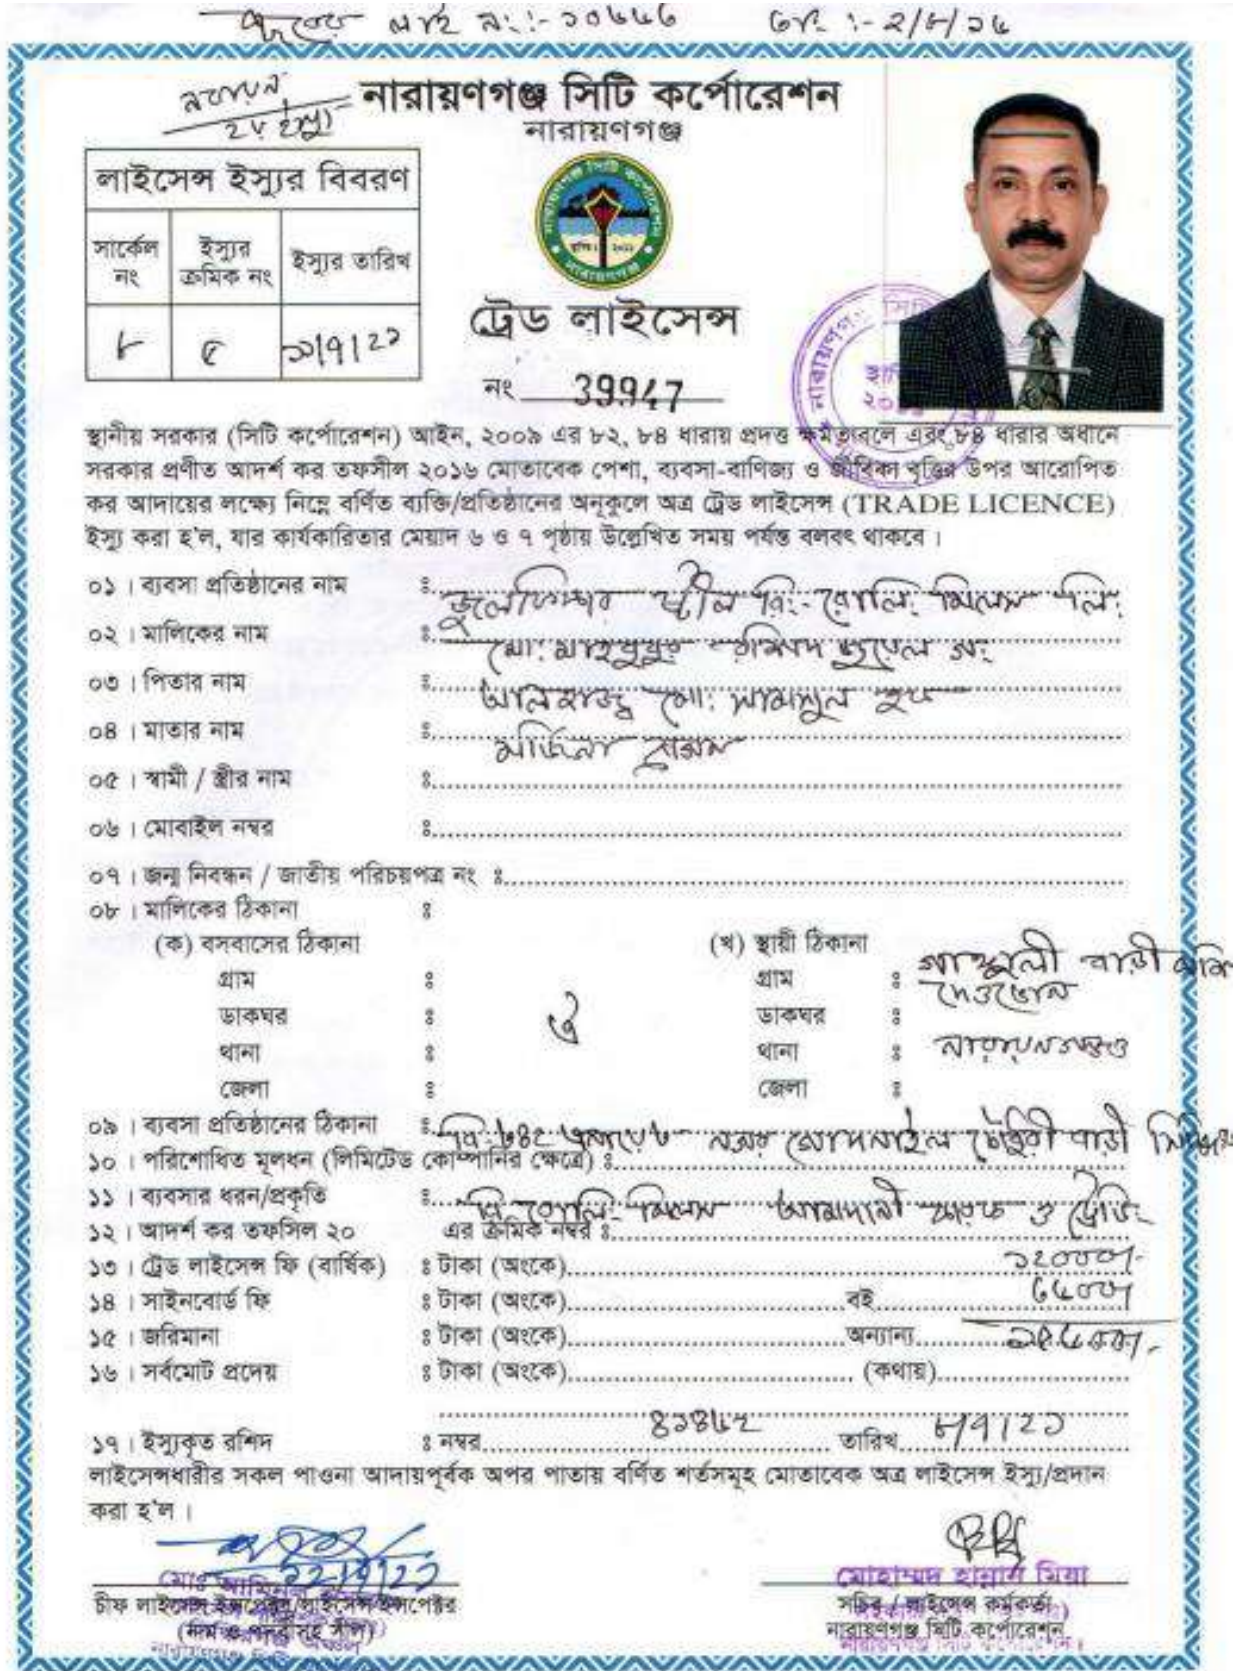 নং :- ১০৬৬৬ তাং :- ২/৮/১৬
নারায়ণগঞ্জ সিটি কর্পোরেশন
নারায়ণগঞ্জ
লাইসেন্স ইস্যুর বিবরণ
সার্কেল নং ইস্যুর ক্রমিক নং ইস্যুর তারিখ
৮ ৫
নারায়ণগঞ্জ সিটি কর্পোরেশন
নারায়ণগঞ্জ
ট্রেড লাইসেন্স
নং 39947
স্থানীয় সরকার (সিটি কর্পোরেশন) আইন, ২০০৯ এর ৮২, ৮৪ ধারায় প্রদত্ত ক্ষমতাবলে এবং ৮৪ ধারার অধানে
সরকার প্রণীত আদর্শ কর তফসীল ২০১৬ মোতাবেক পেশা, ব্যবসা-বাণিজ্য ও জীবিকা বৃত্তির উপর আরোপিত
কর আদায়ের লক্ষ্যে নিম্নে বর্ণিত ব্যক্তি/প্রতিষ্ঠানের অনুকুলে অত্র ট্রেড লাইসেন্স (TRADE LICENCE)
ইস্যু করা হ'ল, যার কার্যকারিতার মেয়াদ ৬ ও ৭ পৃষ্ঠায় উল্লেখিত সময় পর্যন্ত বলবৎ থাকবে ।
০১ । ব্যবসা প্রতিষ্ঠানের নাম ঃ স্টীল রি:- রোলি: মিলস লি:
০২ । মালিকের নাম ঃ মো: মাহবুবুর রশিদ জুয়েল গং
০৩ । পিতার নাম ঃ আলহাজ্ব মো: সামসুল হক
০৪ । মাতার নাম ঃ মর্জিনা বেগম
০৫ । স্বামী / স্ত্রীর নাম ঃ
০৬ । মোবাইল নম্বর ঃ
০৭ । জন্ম নিবন্ধন / জাতীয় পরিচয়পত্র নং ঃ
০৮ । মালিকের ঠিকানা ঃ
(ক) বসবাসের ঠিকানা (খ) স্থায়ী ঠিকানা
গ্রাম ঃ গ্রাম ঃ বাড়ী
দেওভোগ
ডাকঘর ঃ ঐ ডাকঘর ঃ
থানা ঃ থানা ঃ নারায়নগঞ্জ
জেলা ঃ জেলা ঃ
০৯ । ব্যবসা প্রতিষ্ঠানের ঠিকানা ঃ গোদনাইল চৌধুরী বাড়ী
১০ । পরিশোধিত মূলধন (লিমিটেড কোম্পানির ক্ষেত্রে) ঃ
১১ । ব্যবসার ধরন/প্রকৃতি ঃ রি-রোলি: মিলস আমদানী কারক ও ট্রেডিং
১২ । আদর্শ কর তফসিল ২০ এর ক্রমিক নম্বর ঃ
১৩ । ট্রেড লাইসেন্স ফি (বার্ষিক) ঃ টাকা (অংকে) ১২০০০/-
১৪ । সাইনবোর্ড ফি ঃ টাকা (অংকে) বই
১৫ । জরিমানা ঃ টাকা (অংকে) অন্যান্য
১৬ । সর্বমোট প্রদেয় ঃ টাকা (অংকে) (কথায়)
১৭ । ইস্যুকৃত রশিদ ঃ নম্বর ৪১৪৮২ তারিখ ৮/৭/২১
লাইসেন্সধারীর সকল পাওনা আদায়পূর্বক অপর পাতায় বর্ণিত শর্তসমূহ মোতাবেক অত্র লাইসেন্স ইস্যু/প্রদান
করা হ'ল ।
মোঃ আমিনুল মোহাম্মদ হান্নান মিয়া
চীফ লাইসেন্স ইন্সপেক্টর/লাইসেন্স ইন্সপেক্টর সচিব / লাইসেন্স কর্মকর্তা
(নাম ও পদবীসহ সীল) নারায়ণগঞ্জ সিটি কর্পোরেশন